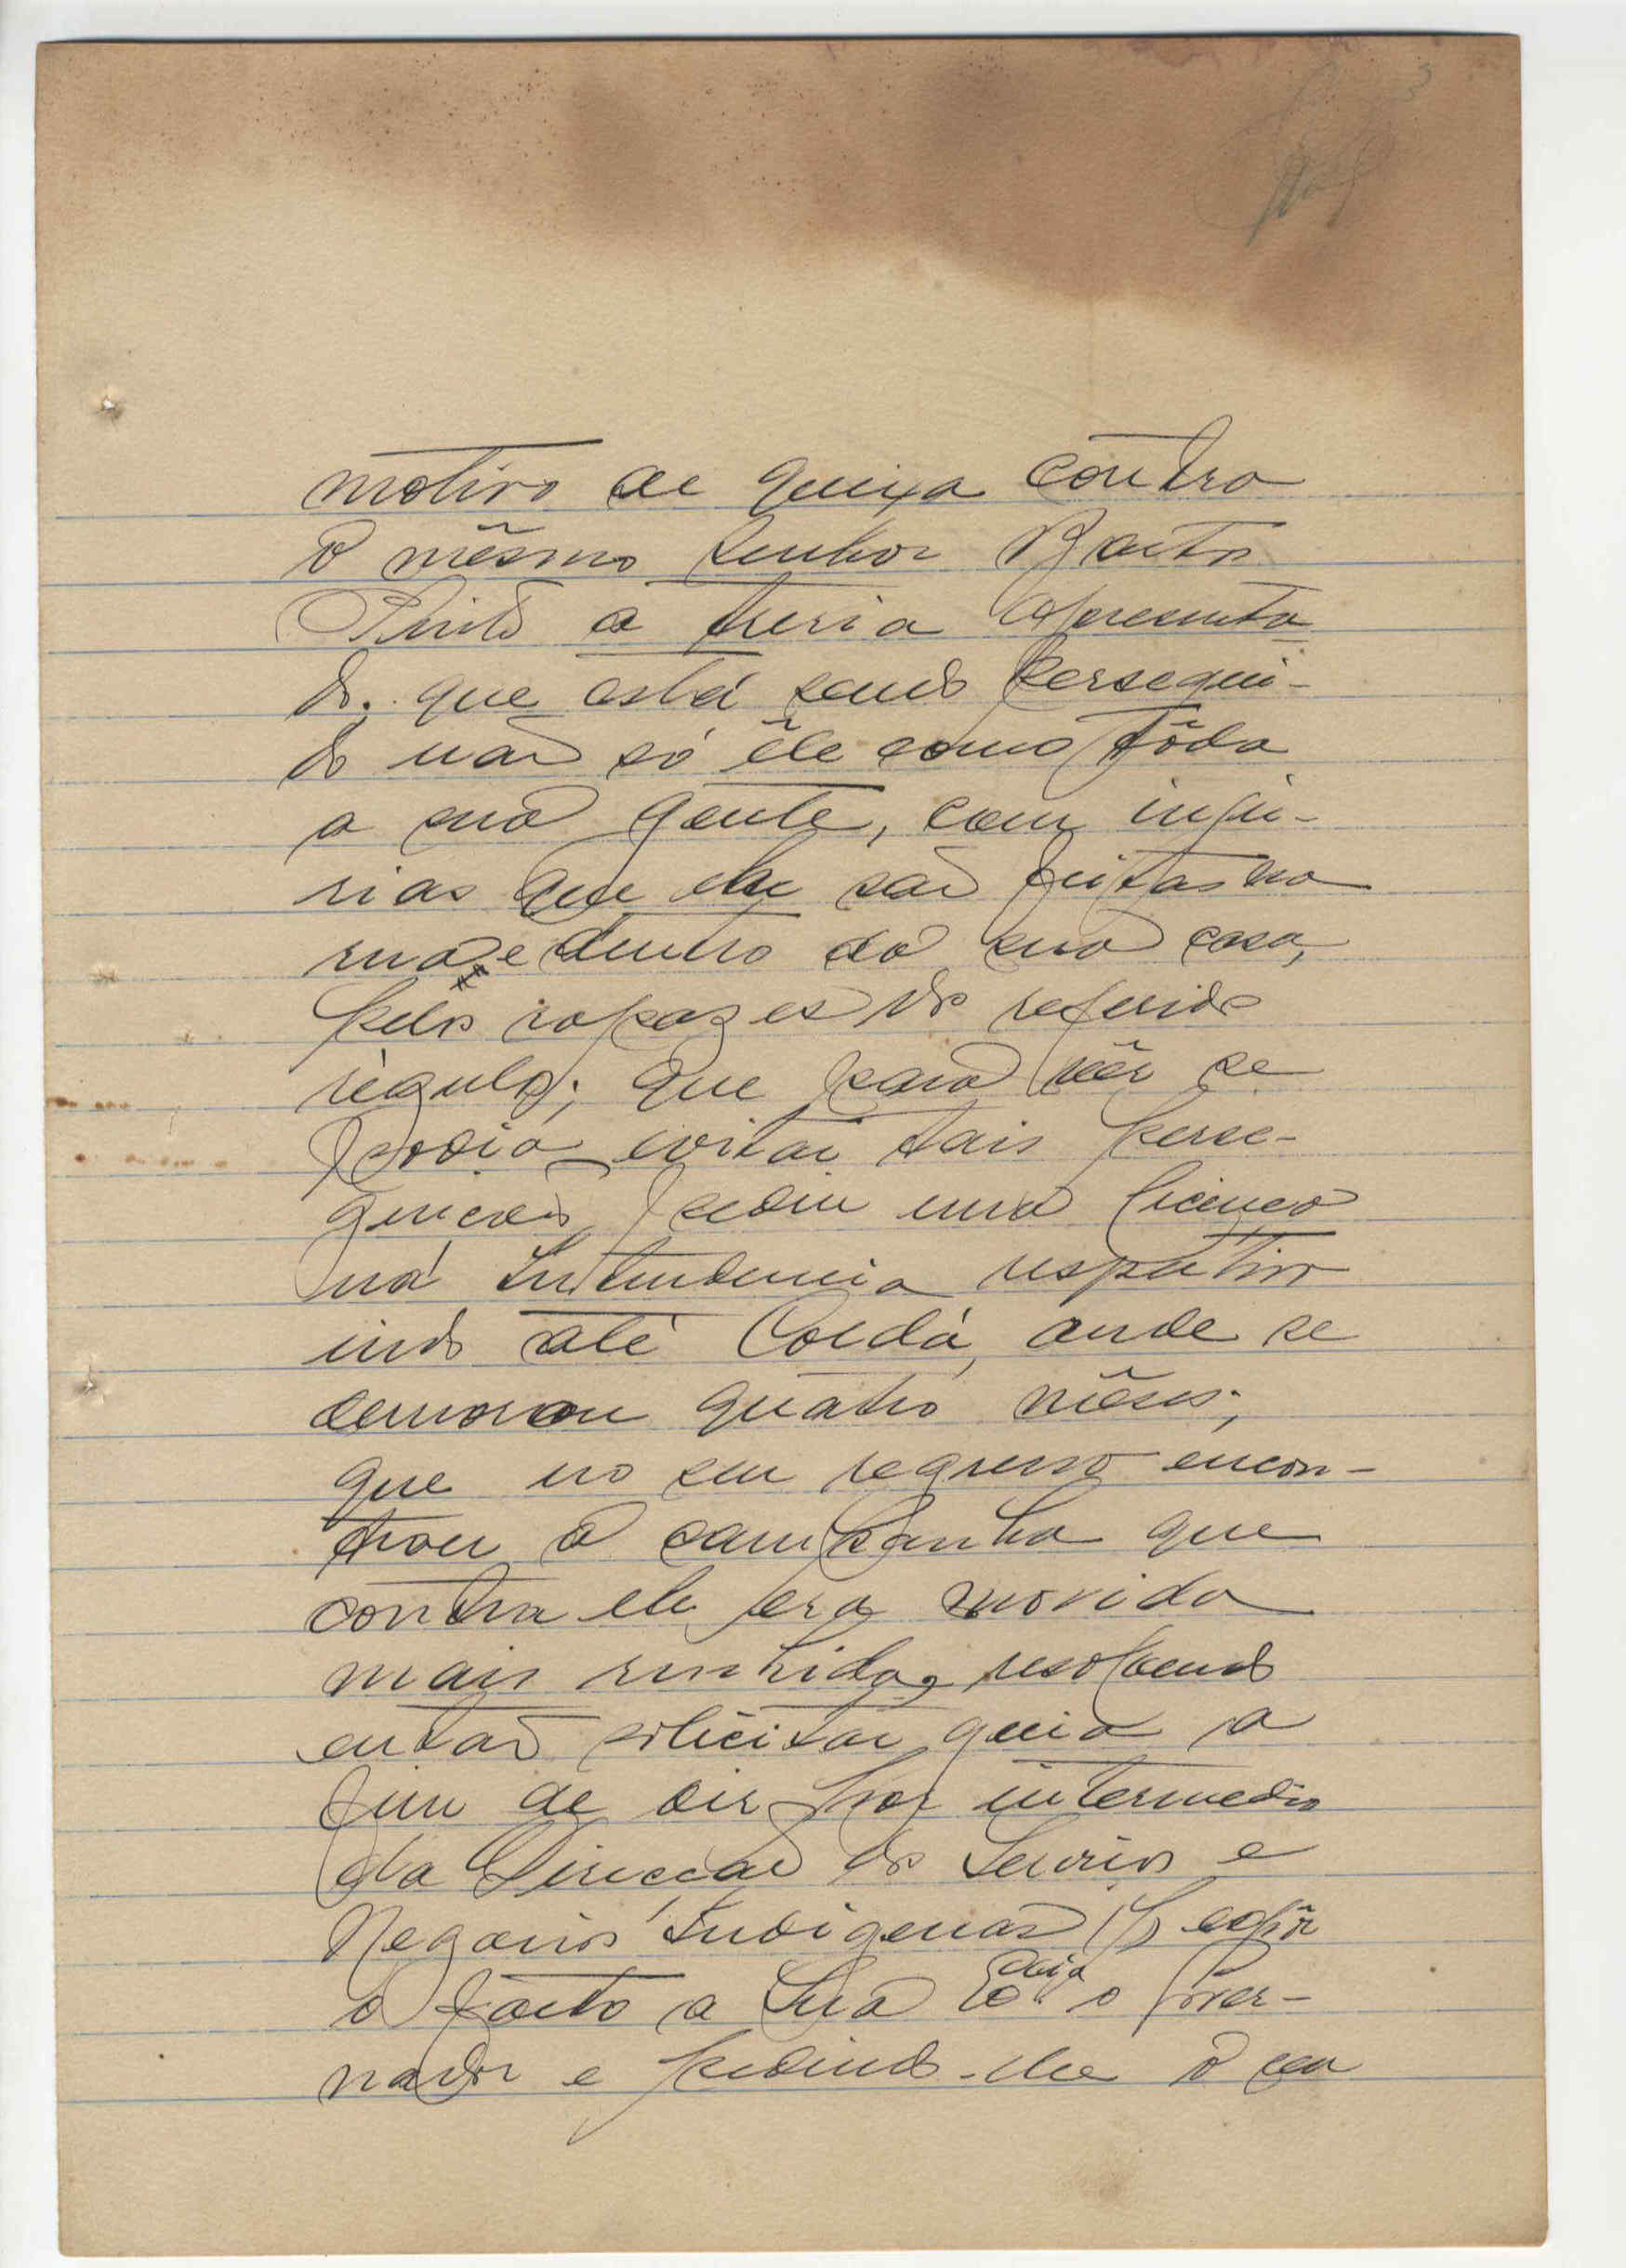 3
motivo de queixa contra
o mêsmo senhor Bastos
Pinto a teria apresenta
do; que está sendo persegui-
do não só êle como tôda
a sua gente, com injú-
rias que lhe são feitas na
rua e dentro da sua casa,
pelos rapazes do referido
règulo; que para vêr se
podia evitar tais perse-
guicões, pediu uma licença
na Intendencia respectiva
indo até Coldá, onde se
demorou quatro mêses;
que no seu regresso encon-
trou a campanha que
contra ele era movida
mais renhida, resolvendo
então solicitar guia a
fim de vir por intermedio
da Direcção dos Serviços e
Negocios Indigenas expôr
o facto a Sua Excia o Gover-
nador e pedindo-lhe o seu